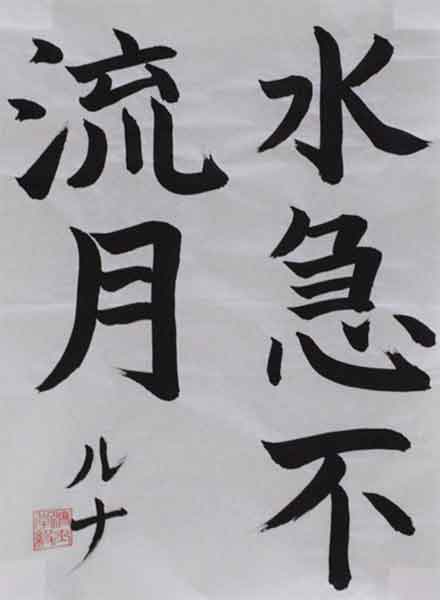 水急不
流月
ルナ